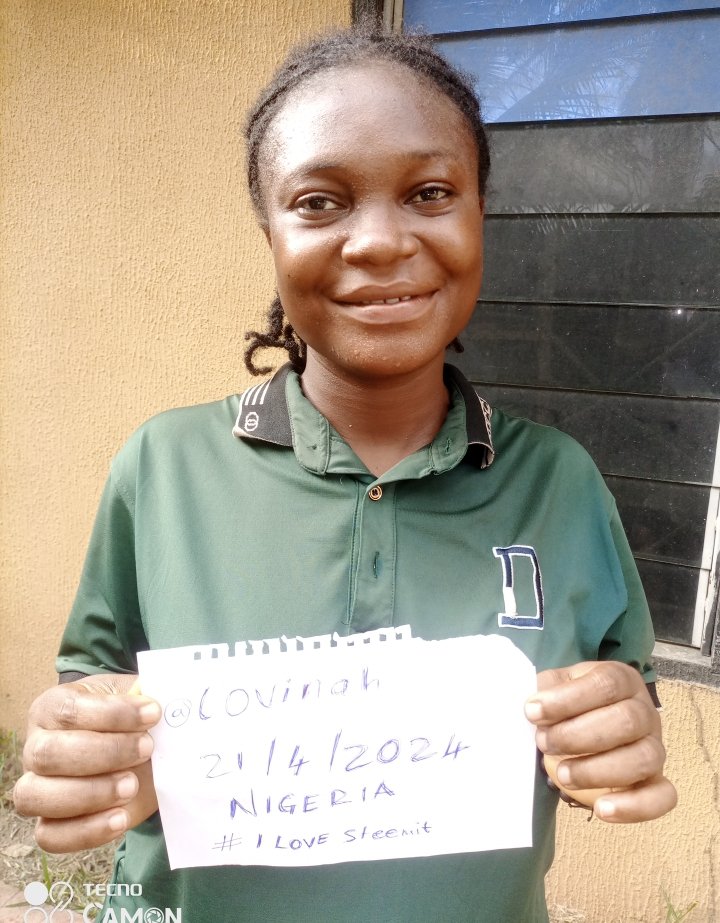 D
@Covinah
21/4/2024
NIGERIA
# I LOVE Steemit
TECNO
CAMON